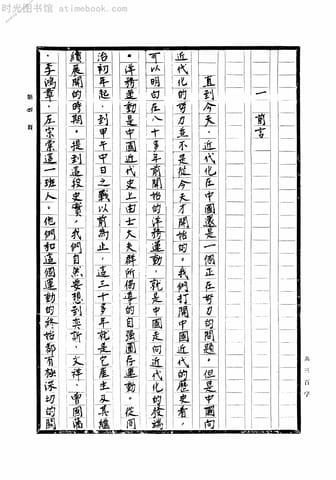 时光图书馆 - atimebook.com
一 前言
直到今天，近代化在中國還是一個正在努力的問題。但是中國向
近代化的努力並不是從今天才開始的。我們打開中國近代的歷史看，
可以明白在八十多年前開始的洋務運動，就是中國走向近代化的發端
。洋務運動是中國近代史上由士大夫群所倡導的自強圖存運動。從同
治初年起，到甲午中日之戰以前為止，這三十多年就是它產生及其繼
續展開的時期。提到這段史實，我們自然要想到奕訢，文祥，曾國藩
，李鴻章，左宗棠這一班人。他們和這個運動的終始都有極深切的關
第 頁
共三百字